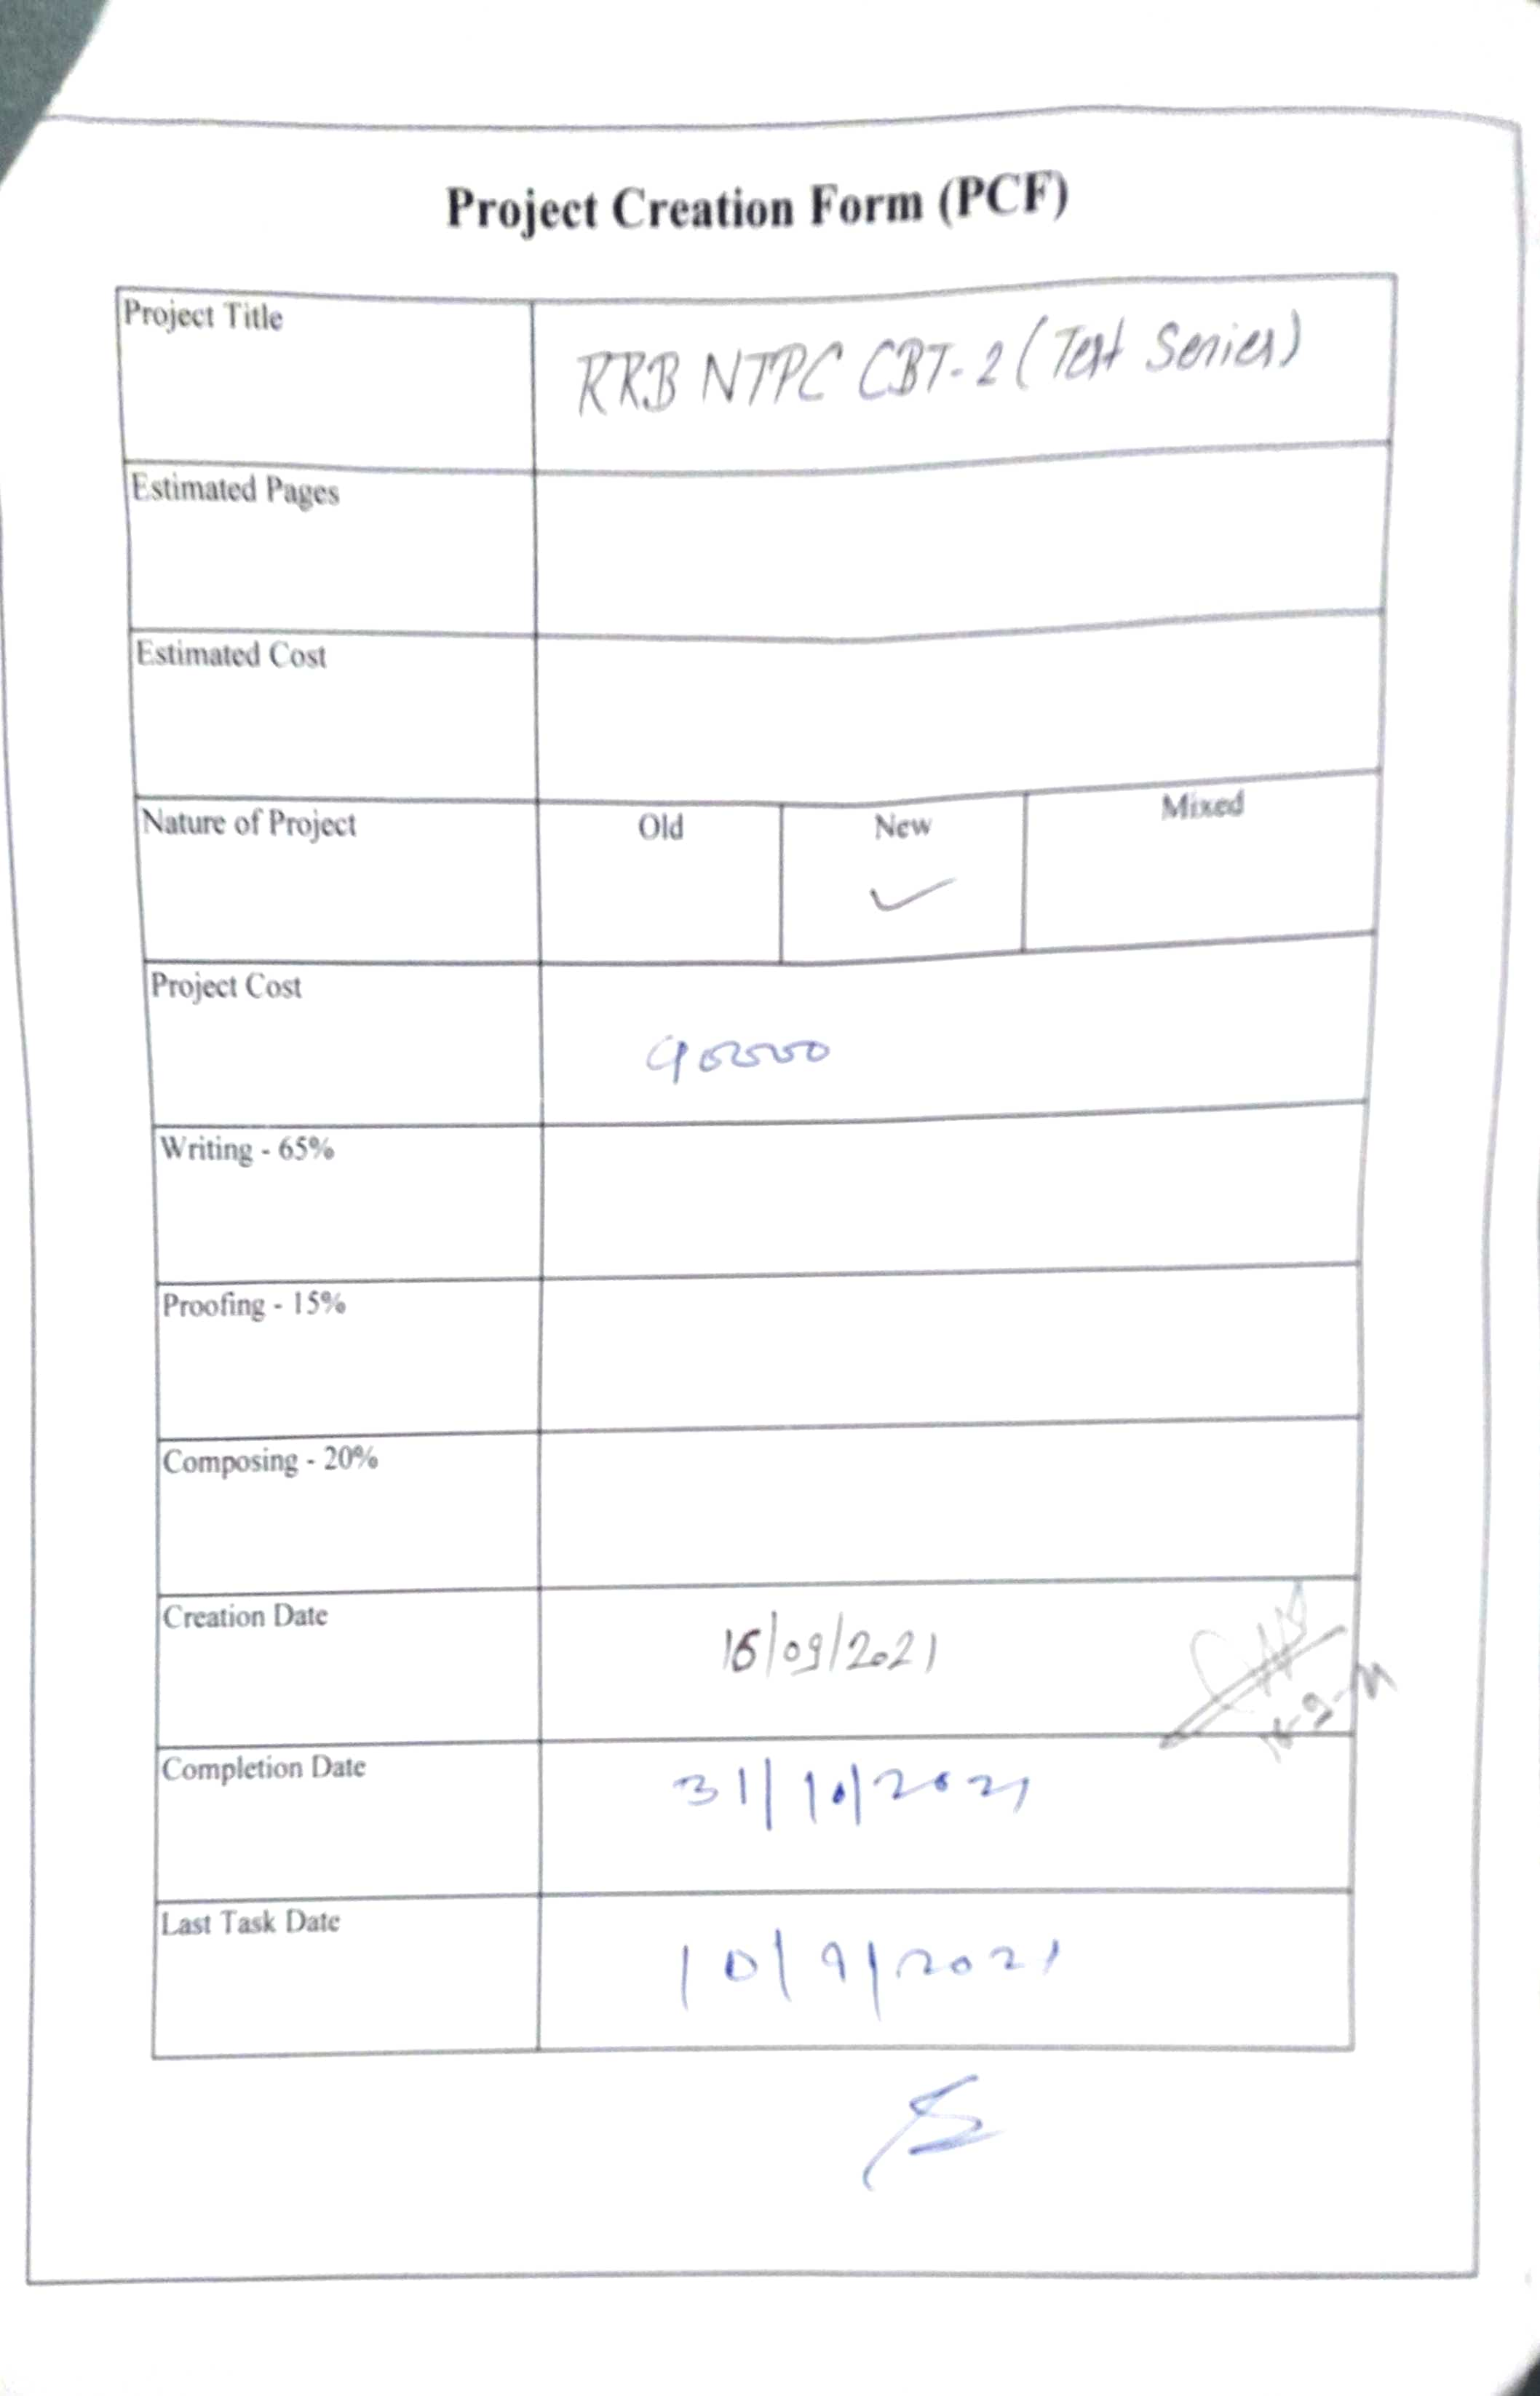 Project Creation Form (PCF)
Project Title
RRB NTPC CBT-2 (Test Series)
Estimated Pages
Estimated Cost
Nature of Project Old New Mixed
Project Cost
90000
Writing - 65%
Proofing - 15%
Composing - 20%
Creation Date
15/09/2021
Completion Date
31/10/2021
Last Task Date
10/9/2021